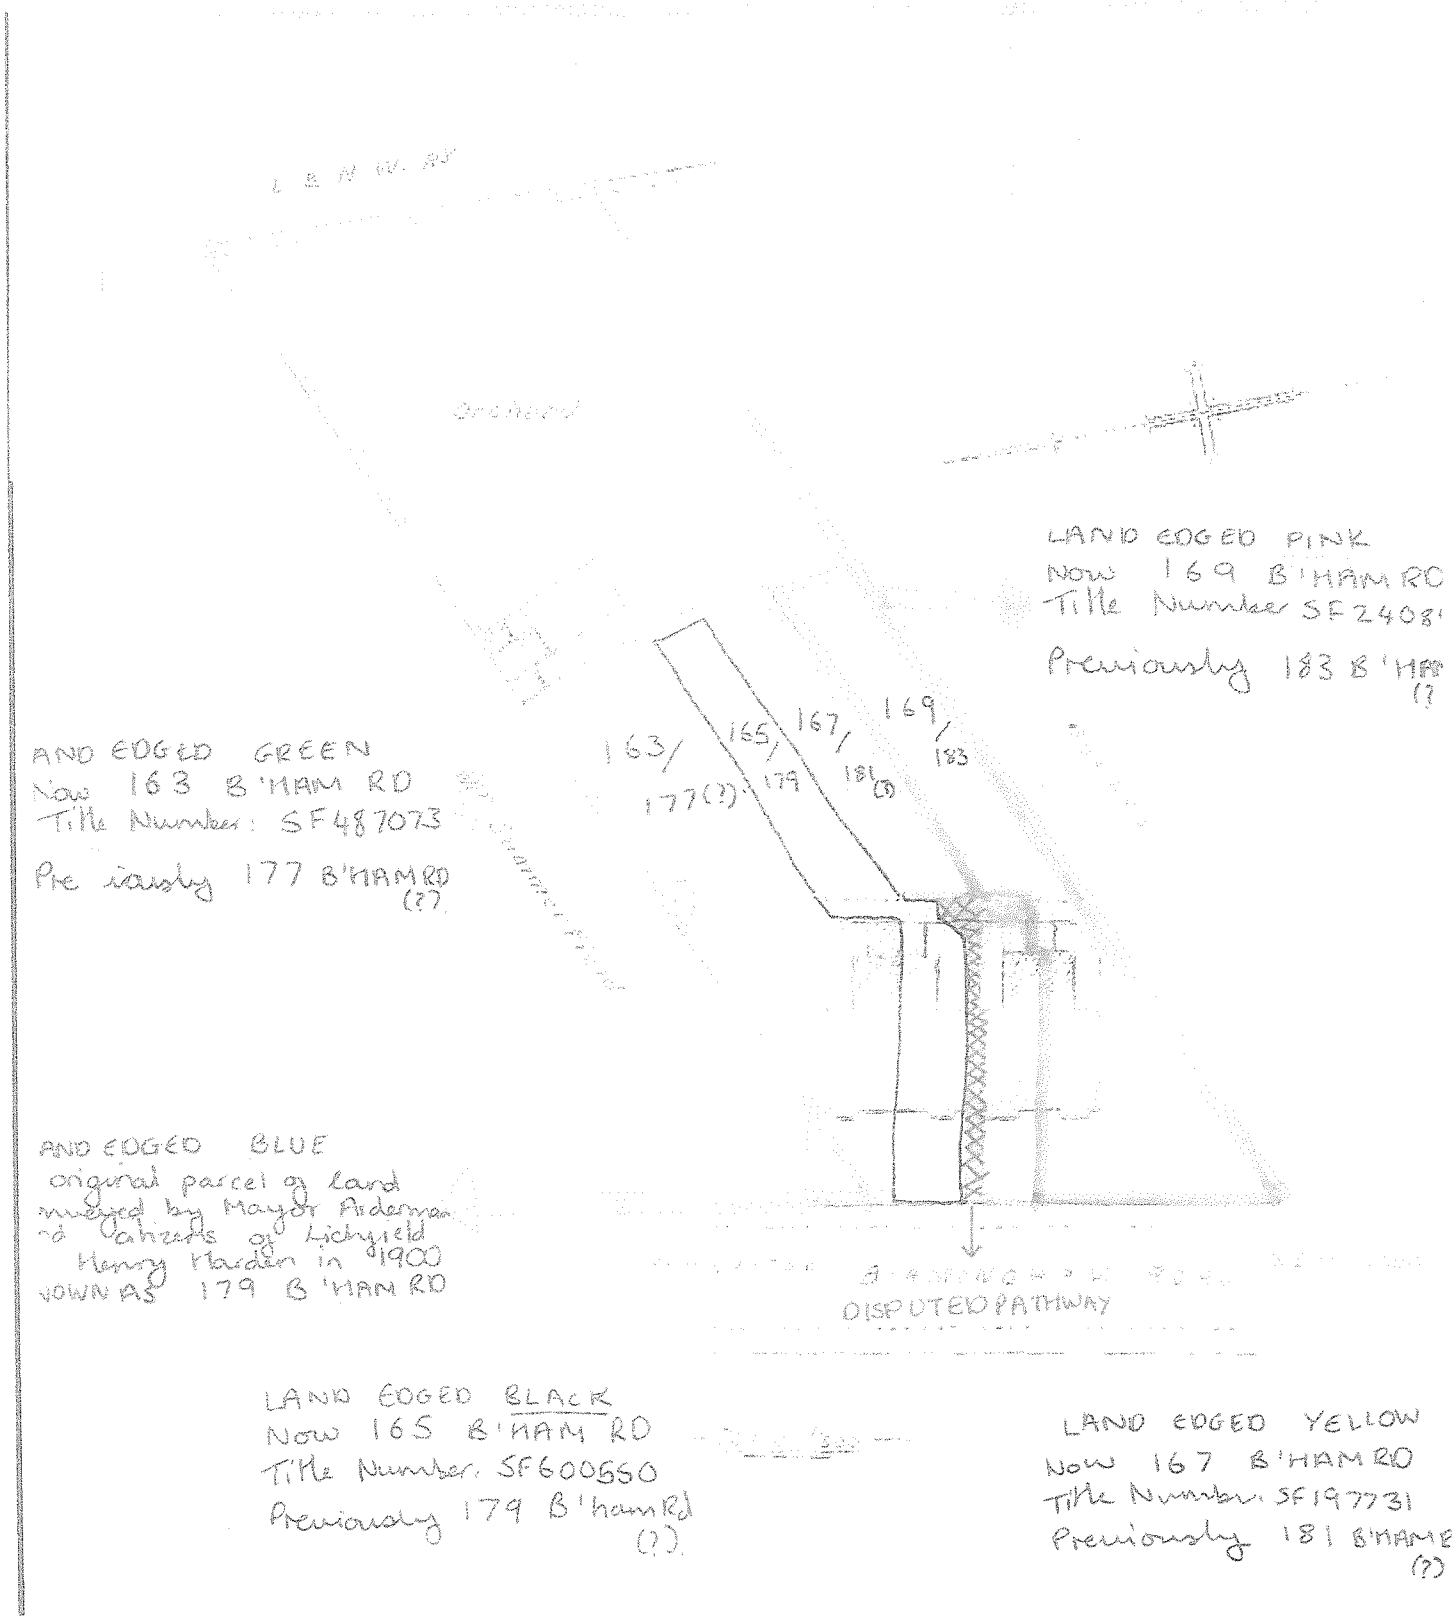 L & N W. RY
ORCHARD
LAND EDGED PINK
NOW 169 B'HAM RD
Title Number SF2408
Previously 183 B'HA
(?
163/
177(?)
165/
179
167/
181(?)
169/
183
AND EDGED GREEN
Now 163 B'HAM RD
Title Number: SF487073
Pre iously 177 B'HAM RD
(?)
AND EDGED BLUE
original parcel of land
nveyed by Mayor Alderman
nd citizens of Lichfield
Henry Harden in 1900
NOWN AS 179 B'HAM RD
BIRMINGHAM ROAD
DISPUTED PATHWAY
LAND EDGED BLACK
NOW 165 B'HAM RD
Title Number. SF600550
Previously 179 B'ham Rd
(?).
LAND EDGED YELLOW
NOW 167 B'HAM RD
Title Number. SF197731
Previously 181 B'HAM
(?)